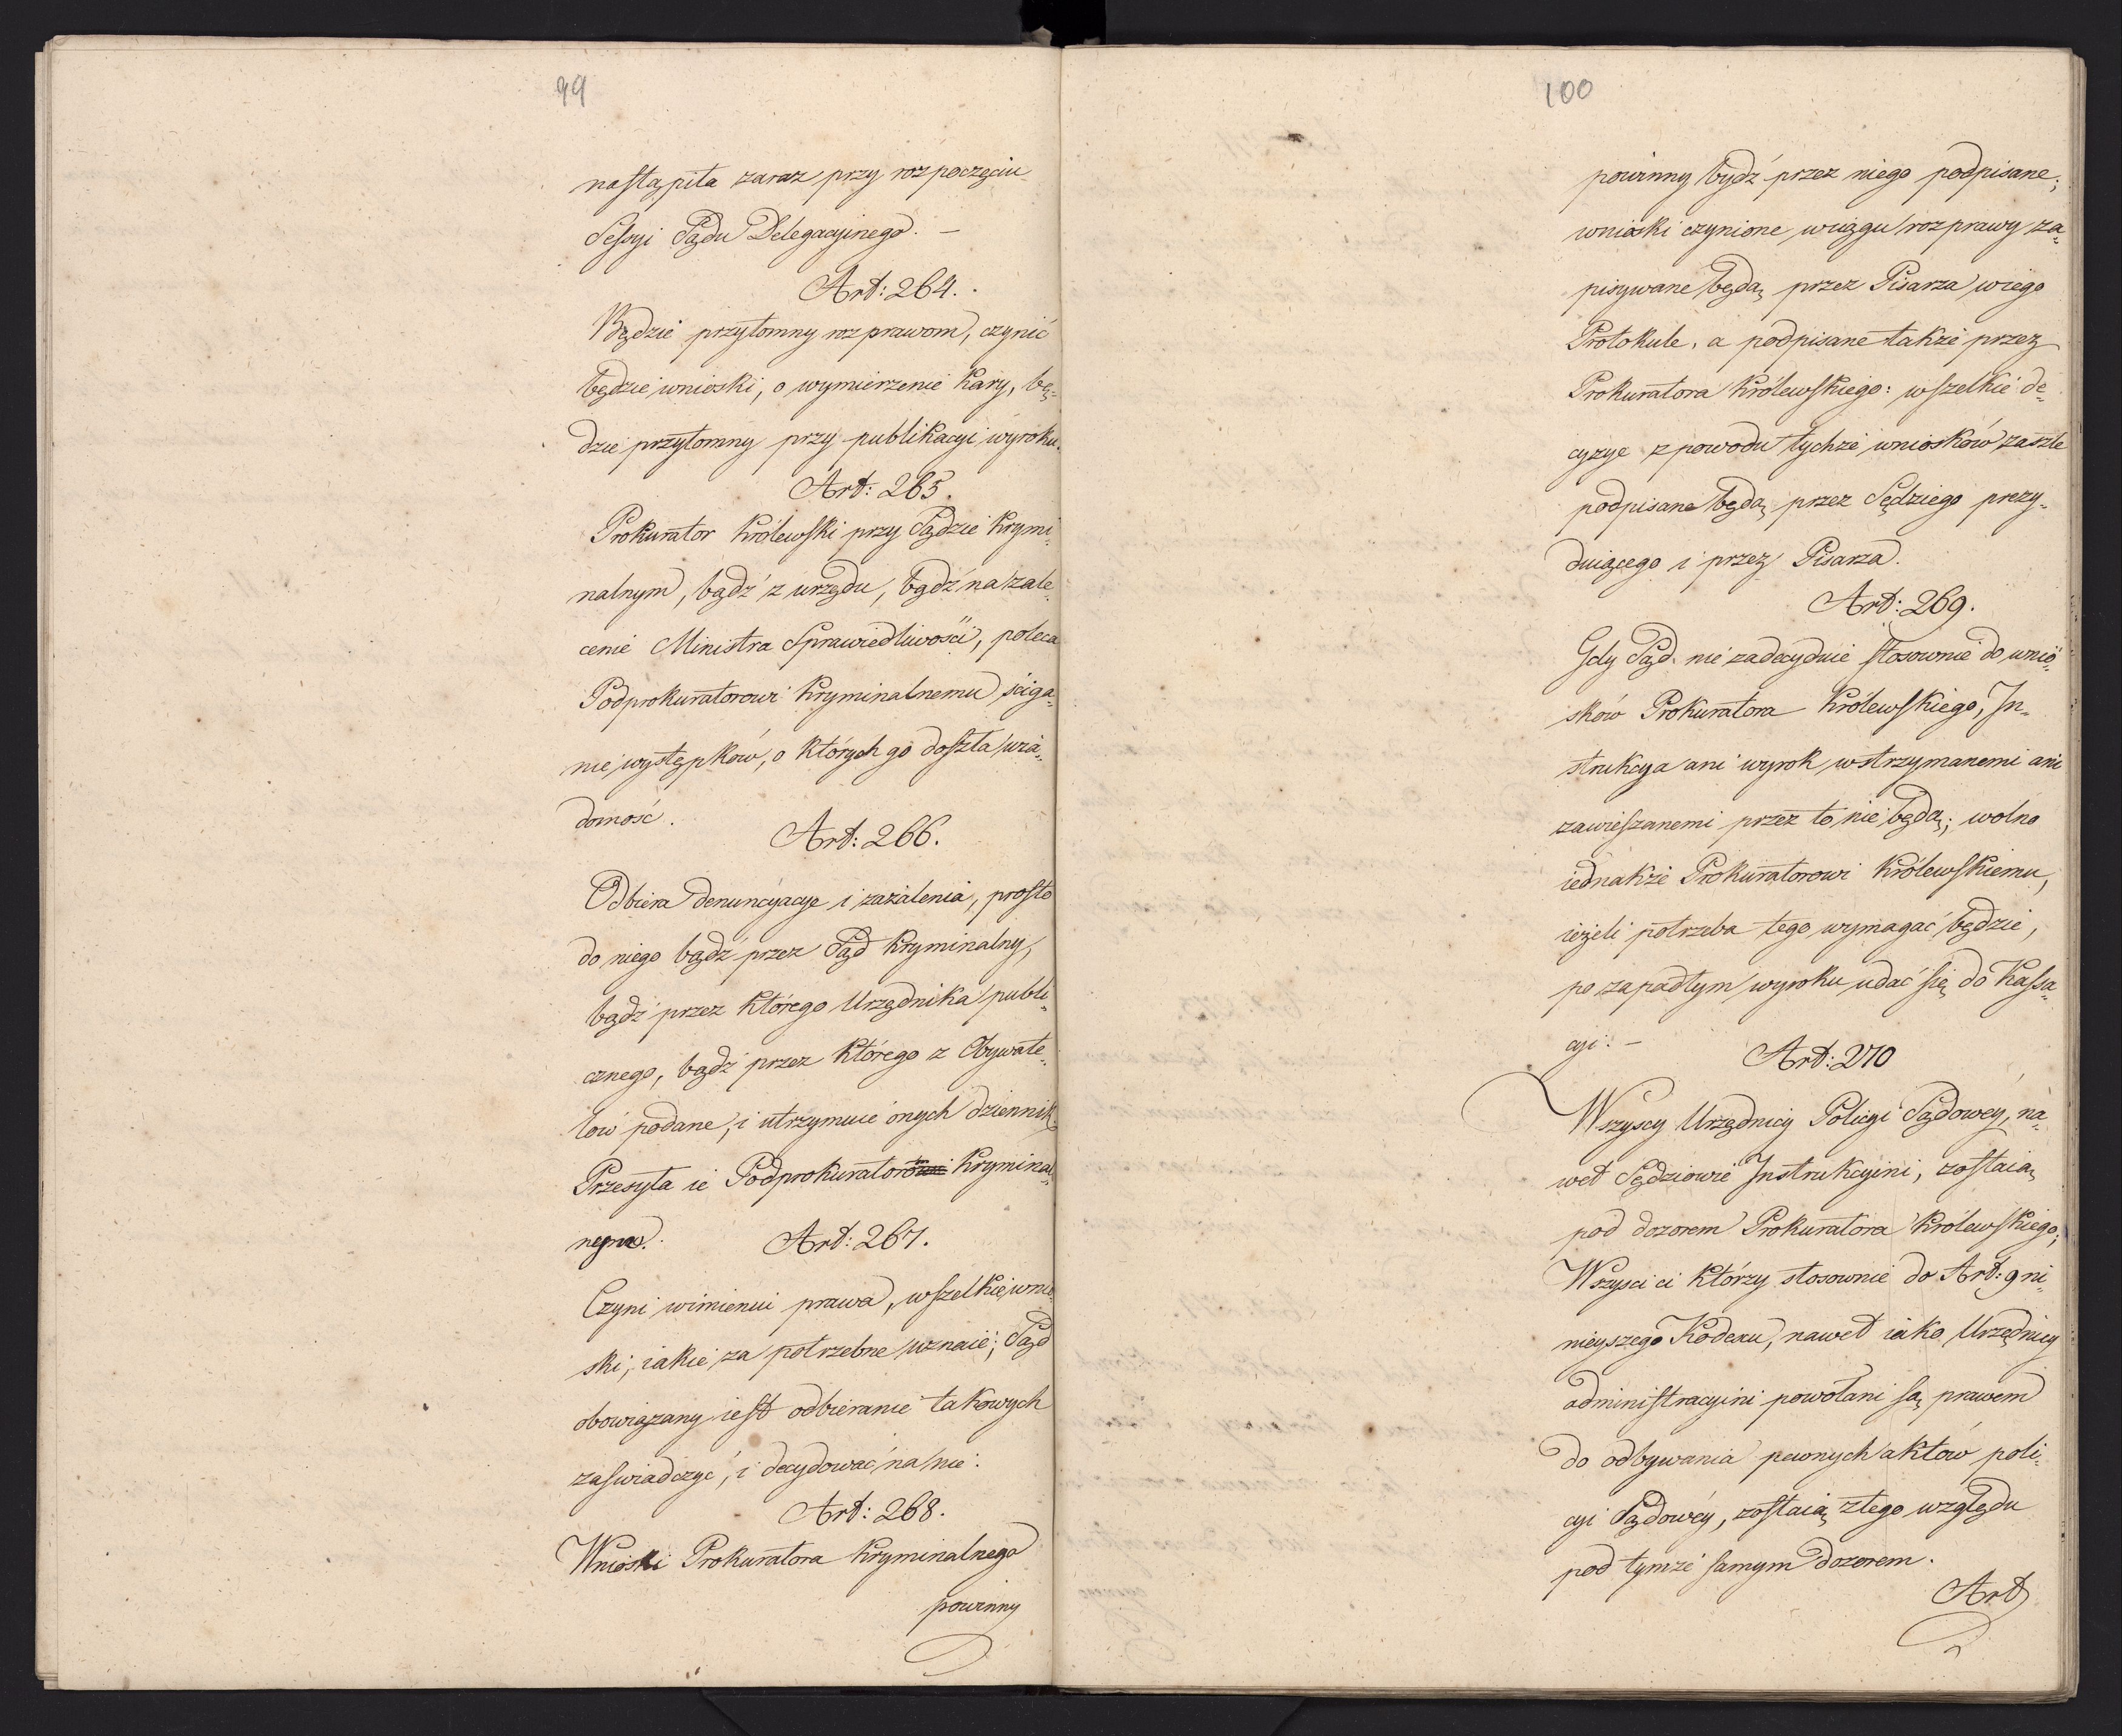 99
nastąpiła zaraz przy rozpoczęciu
Sessyi Sądu Delegacyinego. —
Art: 264.
Będzie przytomny rozprawom, czynić
będzie wnioski, o wymierzenie kary, bę„
dzie przytomny przy publikacyi wyroku.
Art: 265.
Prokurator Królewski przy Sądzie Krymi„
nalnym, bądź z urzędu, bądź na zale„
cenie Ministra Sprawiedliwości, poleca
Podprokuratorowi Kryminalnemu ściga„
nie występków, o których go doszła wia„
domość.
Art: 266.
Odbiera denuncyacye i zażalenia, prosto
do niego bądź przez Sąd Kryminalny,
bądź przez którego Urzędnika publi„
cznego, bądź przez którego z Obywate„
lów podane, i utrzymuie onych dziennik.
Przesyła ie Podprokuratorom Kryminal„
nym.
Art: 267.
Czyni w imieniu prawa, wszelkie wnio„
ski, iakie za potrzebne uznaie; Sąd
obowiązany iest odbieranie takowych
zaświadczyć, i decydować na nie.
Art: 268.
Wnioski Prokuratora Kryminalnego
powinny
100
powinny bydź przez niego podpisane;
wnioski czynione wciągu rozprawy za„
pisywane będą przez Pisarza wiego
Protokule, a podpisane także przez
Prokuratora Królewskiego: wszelkie de„
cyzye z powodu tychże wniosków zaszłe
podpisane będą przez Sędziego prezy„
duiącego i przez Pisarza.
Art: 269.
Gdy Sąd nie zadecyduie stosownie do wnio„
sków Prokuratora Królewskiego, In„
strukcya ani wyrok wstrzymanemi ani
zawieszanemi przez to nie będą; wolno
iednakże Prokuratorowi Królewskiemu,
ieżeli potrzeba tego wymagać będzie,
po zapadłym wyroku udać się do Kassa„
cyi. —
Art: 270
Wszyscy Urzędnicy Policyi Sądowey, na„
wet Sędziowie Instrukcyini, zostaią
pod dozorem Prokuratora Królewskiego;
Wszyscy ci którzy stosownie do Art: 9 ni„
nieyszego Kodexu, nawet iako Urzędnicy
administracyini powołani są prawem
do odbywania pewnych aktów poli„
cyi Sądowéy, zostaią ztego względu
pod tymże samym dozorem.
Art